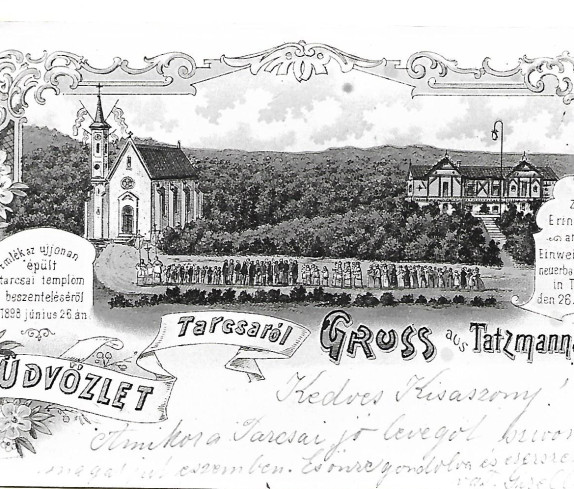 Emlék az ujjonan
épült
tarcsai templom
beszenteléséről
1898 június 26 án
Z
Erin
an
Einwei
neuerba
in T
den 26.
ÜDVÖZLET
Tarcsaról
GRUSS aus Tatzmann
Kedves Kisaszony!
Amikor a Tarcsai jó levegőt
eszembe. És önre gondolva és